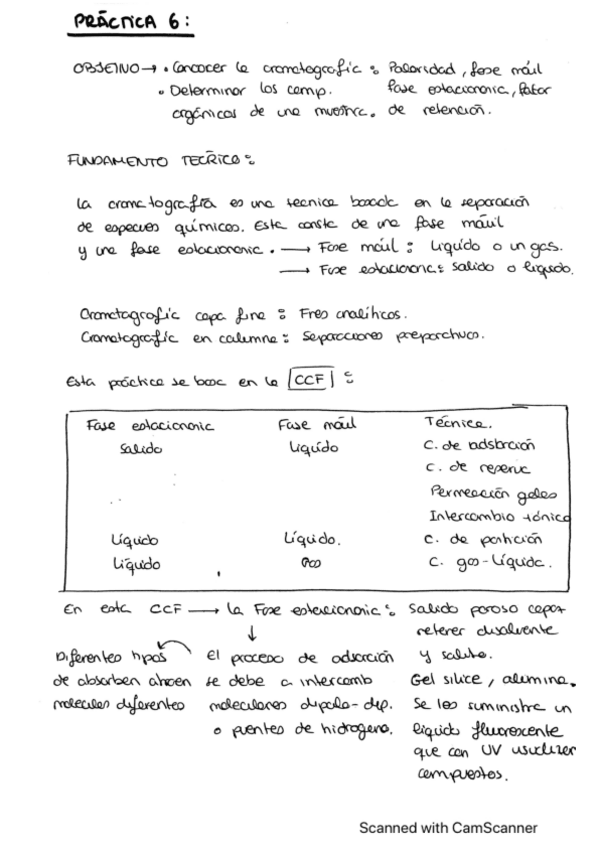 PRÁCTICA 6:
OBJETIVO → • Conocer la cromatografía : Polaridad, fase móvil
• Determinar los comp. fase estacionaria, factor
orgánicos de una muestra. de retención.
FUNDAMENTO TEÓRICO:
La cromatografía es una tecnica basada en la separación
de especies químicas. Esta consta de una fase móvil
y una fase estacionaria. → Fase móvil : líquido o un gas.
→ Fase estacionaria: solido o líquido.
Cromatografía capa fina : Fines analíticos.
Cromatografía en columna : Separaciones preparativas.
Esta práctica se basa en la CCF :
Fase estacionaria Fase móvil Técnica.
Solido Líquido C. de adsorción
C. de
Permeación geles
Intercambio iónico
Líquido Líquido. C. de partición
Líquido Gas C. gas-líquido.
En esta CCF → la Fase estacionaria : Solido poroso capaz
retener disolvente
Diferentes tipos El proceso de adsorción y soluto.
de absorben atraen se debe a intercamb Gel sílice, alumina.
moleculas diferentes moleculares dipolo-dip. Se les suministra un
o puentes de hidrogeno. líquido fluorescente
que con UV visualizar
compuestos.
Scanned with CamScanner